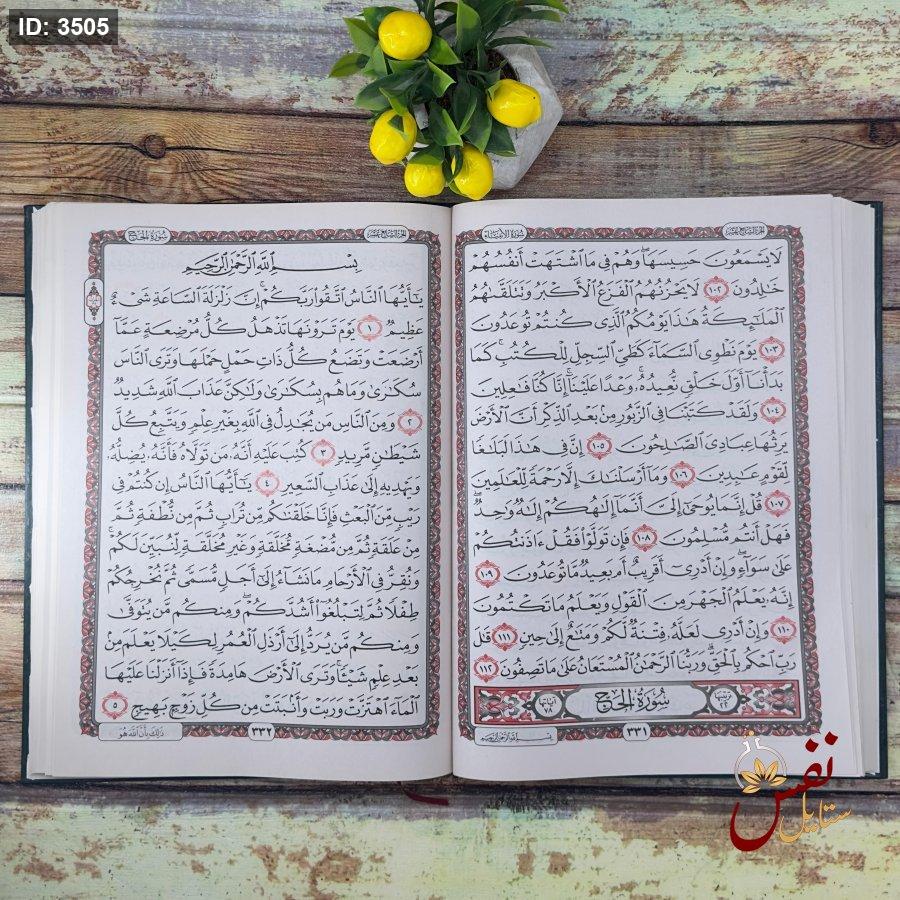 ID: 3505
الجزء السابع عشر
سورة الأنبياء
لَا يَسْمَعُونَ حَسِيسَهَا ۖ وَهُمْ فِي مَا اشْتَهَتْ أَنفُسُهُمْ
خَالِدُونَ ١٠٢ لَا يَحْزُنُهُمُ الْفَزَعُ الْأَكْبَرُ وَتَتَلَقَّاهُمُ
الْمَلَائِكَةُ هَٰذَا يَوْمُكُمُ الَّذِي كُنتُمْ تُوعَدُونَ
١٠٣ يَوْمَ نَطْوِي السَّمَاءَ كَطَيِّ السِّجِلِّ لِلْكُتُبِ ۚ كَمَا
بَدَأْنَا أَوَّلَ خَلْقٍ نُّعِيدُهُ ۚ وَعْدًا عَلَيْنَا ۚ إِنَّا كُنَّا فَاعِلِينَ
١٠٤ وَلَقَدْ كَتَبْنَا فِي الزَّبُورِ مِن بَعْدِ الذِّكْرِ أَنَّ الْأَرْضَ
يَرِثُهَا عِبَادِيَ الصَّالِحُونَ ١٠٥ إِنَّ فِي هَٰذَا لَبَلَاغًا
لِّقَوْمٍ عَابِدِينَ ١٠٦ وَمَا أَرْسَلْنَاكَ إِلَّا رَحْمَةً لِّلْعَالَمِينَ
١٠٧ قُلْ إِنَّمَا يُوحَىٰ إِلَيَّ أَنَّمَا إِلَٰهُكُمْ إِلَٰهٌ وَاحِدٌ ۖ
فَهَلْ أَنتُم مُّسْلِمُونَ ١٠٨ فَإِن تَوَلَّوْا فَقُلْ آذَنتُكُمْ
عَلَىٰ سَوَاءٍ ۖ وَإِنْ أَدْرِي أَقَرِيبٌ أَم بَعِيدٌ مَّا تُوعَدُونَ ١٠٩
إِنَّهُ يَعْلَمُ الْجَهْرَ مِنَ الْقَوْلِ وَيَعْلَمُ مَا تَكْتُمُونَ
١١٠ وَإِنْ أَدْرِي لَعَلَّهُ فِتْنَةٌ لَّكُمْ وَمَتَاعٌ إِلَىٰ حِينٍ ١١١ قَالَ
رَبِّ احْكُم بِالْحَقِّ ۗ وَرَبُّنَا الرَّحْمَٰنُ الْمُسْتَعَانُ عَلَىٰ مَا تَصِفُونَ ١١٢
ترتيبها ٢٢ سُورَةُ الحَجِّ آياتها ٧٨
٣٣١
بسم الله الرحمن الرحيم
الجزء السابع عشر
سورة الحج
بِسْمِ اللَّهِ الرَّحْمَٰنِ الرَّحِيمِ
يَا أَيُّهَا النَّاسُ اتَّقُوا رَبَّكُمْ ۚ إِنَّ زَلْزَلَةَ السَّاعَةِ شَيْءٌ
عَظِيمٌ ١ يَوْمَ تَرَوْنَهَا تَذْهَلُ كُلُّ مُرْضِعَةٍ عَمَّا
أَرْضَعَتْ وَتَضَعُ كُلُّ ذَاتِ حَمْلٍ حَمْلَهَا وَتَرَى النَّاسَ
سُكَارَىٰ وَمَا هُم بِسُكَارَىٰ وَلَٰكِنَّ عَذَابَ اللَّهِ شَدِيدٌ
٢ وَمِنَ النَّاسِ مَن يُجَادِلُ فِي اللَّهِ بِغَيْرِ عِلْمٍ وَيَتَّبِعُ كُلَّ
شَيْطَانٍ مَّرِيدٍ ٣ كُتِبَ عَلَيْهِ أَنَّهُ مَن تَوَلَّاهُ فَأَنَّهُ يُضِلُّهُ
وَيَهْدِيهِ إِلَىٰ عَذَابِ السَّعِيرِ ٤ يَا أَيُّهَا النَّاسُ إِن كُنتُمْ فِي
رَيْبٍ مِّنَ الْبَعْثِ فَإِنَّا خَلَقْنَاكُم مِّن تُرَابٍ ثُمَّ مِن نُّطْفَةٍ ثُمَّ
مِنْ عَلَقَةٍ ثُمَّ مِن مُّضْغَةٍ مُّخَلَّقَةٍ وَغَيْرِ مُخَلَّقَةٍ لِّنُبَيِّنَ لَكُمْ ۚ
وَنُقِرُّ فِي الْأَرْحَامِ مَا نَشَاءُ إِلَىٰ أَجَلٍ مُّسَمًّى ثُمَّ نُخْرِجُكُمْ
طِفْلًا ثُمَّ لِتَبْلُغُوا أَشُدَّكُمْ ۖ وَمِنكُم مَّن يُتَوَفَّىٰ
وَمِنكُم مَّن يُرَدُّ إِلَىٰ أَرْذَلِ الْعُمُرِ لِكَيْلَا يَعْلَمَ مِن
بَعْدِ عِلْمٍ شَيْئًا ۚ وَتَرَى الْأَرْضَ هَامِدَةً فَإِذَا أَنزَلْنَا عَلَيْهَا
الْمَاءَ اهْتَزَّتْ وَرَبَتْ وَأَنبَتَتْ مِن كُلِّ زَوْجٍ بَهِيجٍ ٥
٣٣٢
ذلك بأن الله هو
نفس
ستايل